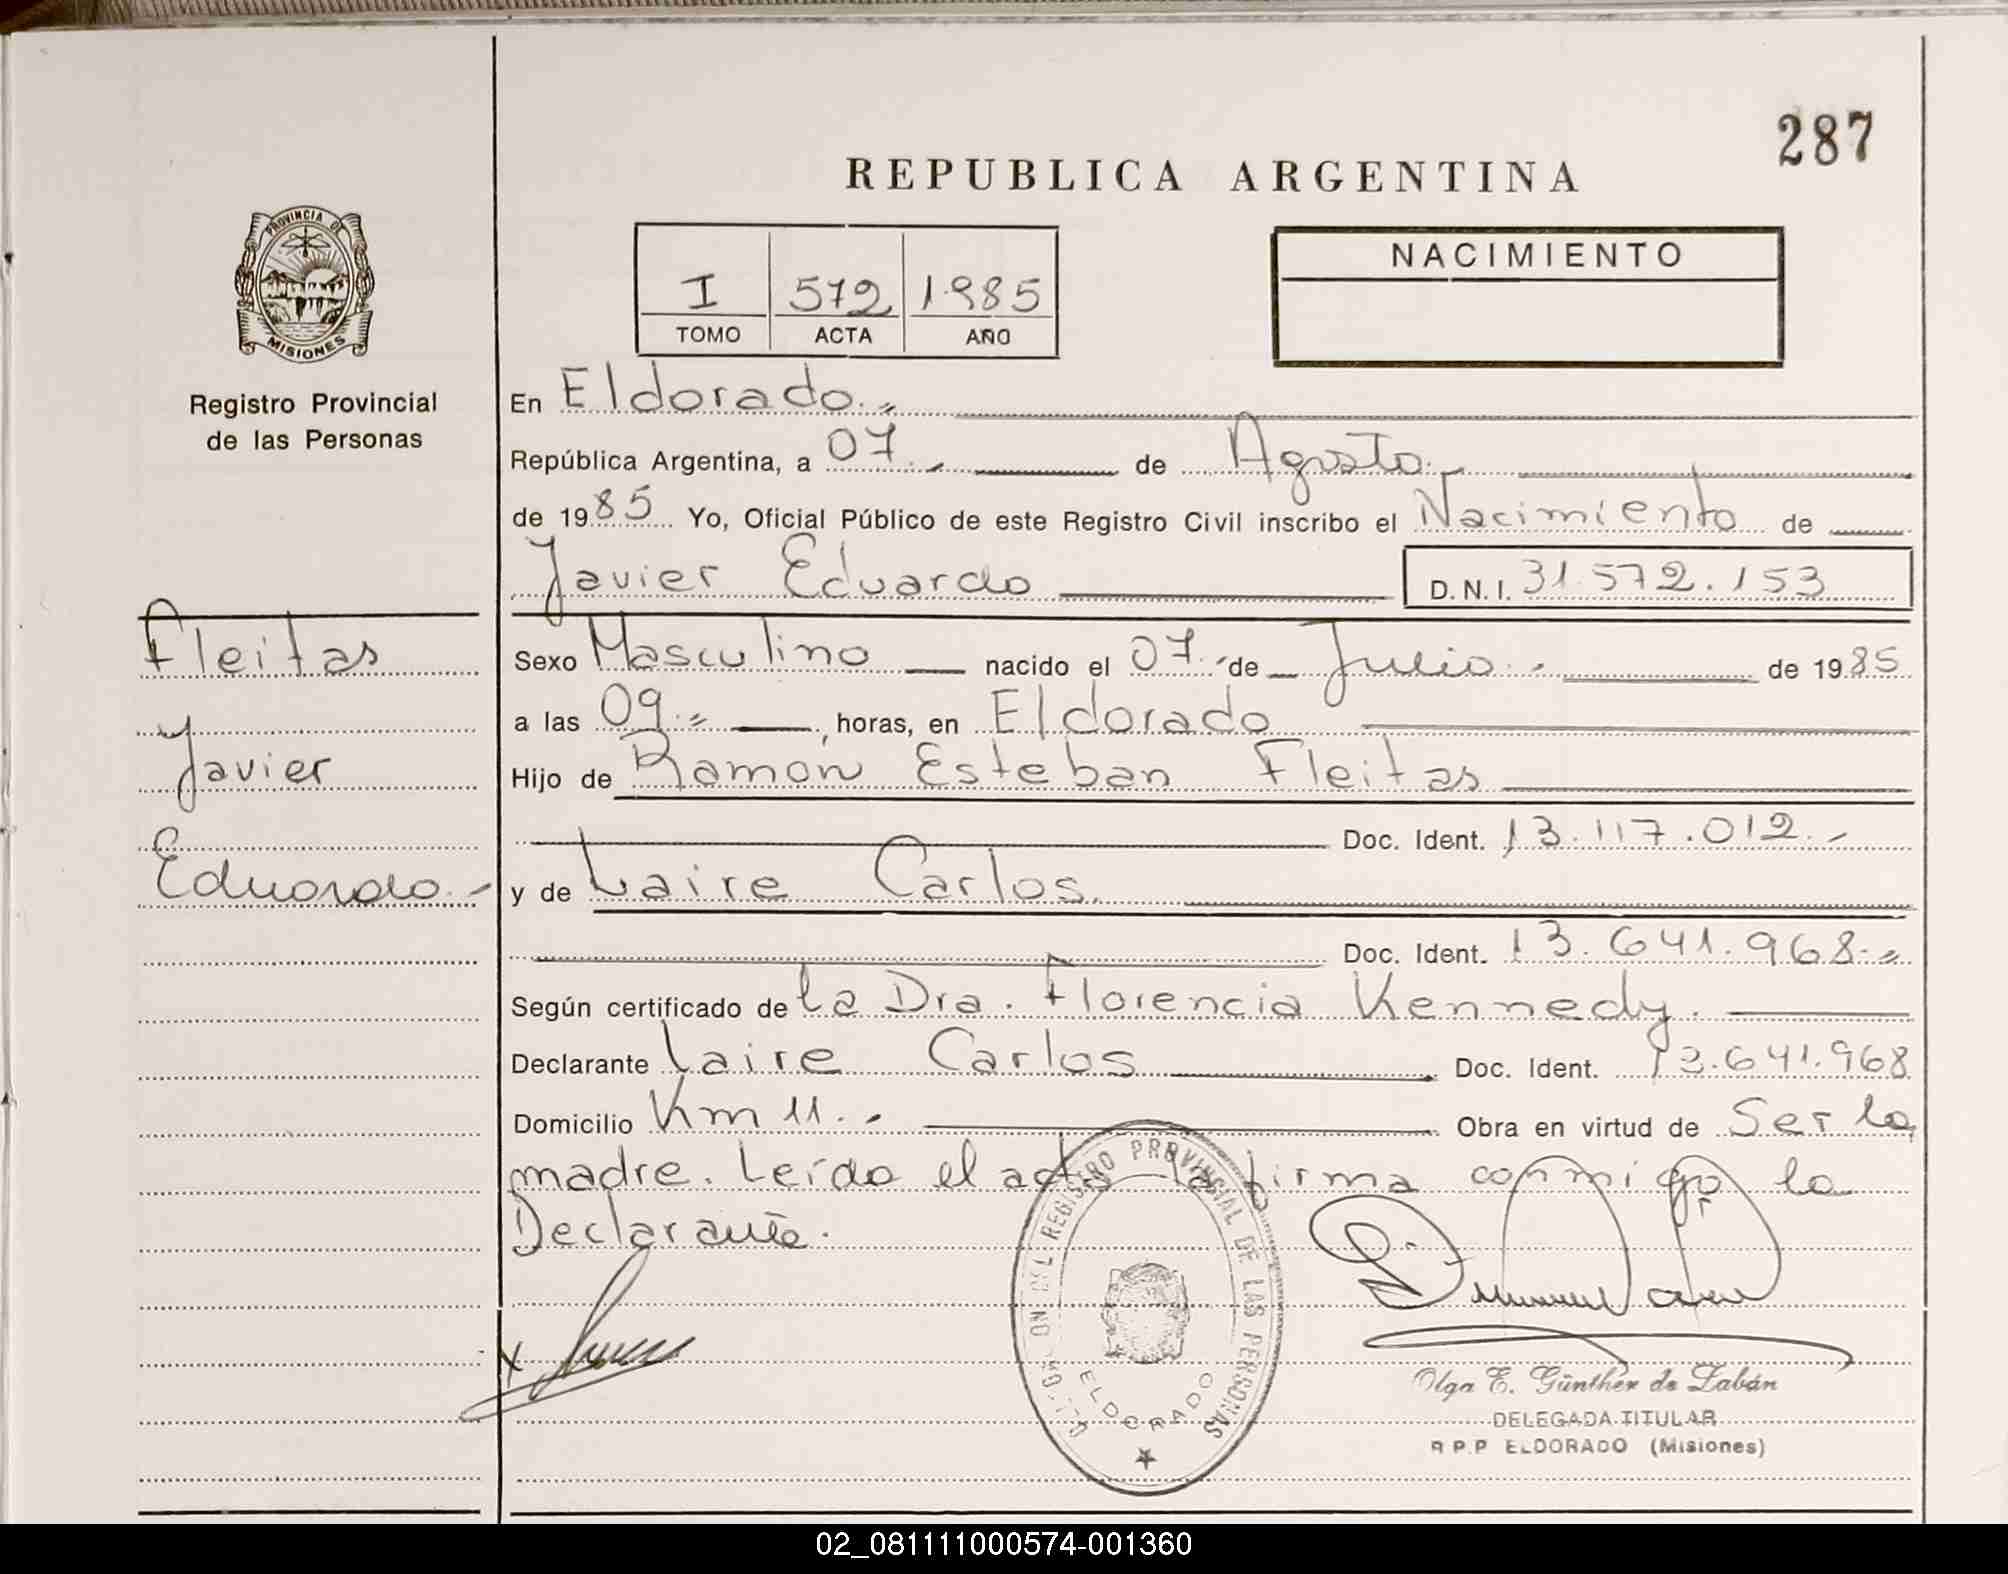 287
REPUBLICA ARGENTINA
PROVINCIA DE
MISIONES
Registro Provincial
de las Personas
I 572 1985
TOMO ACTA AÑO
NACIMIENTO
En Eldorado.
República Argentina, a 07 de Agosto.
de 1985 Yo, Oficial Público de este Registro Civil inscribo el Nacimiento de
Javier Eduardo D.N.I. 31.572.153
Fleitas
Javier
Eduardo.-
Sexo Masculino nacido el 07.- de Julio.- de 1985
a las 09.= , horas, en Eldorado
Hijo de Ramon Esteban Fleitas
Doc. Ident. 13.117.012.-
y de Laire Carlos.
Doc. Ident. 13.641.968.=
Según certificado de la Dra. Florencia Kennedy.
Declarante Laire Carlos Doc. Ident. 13.641.968
Domicilio Km 11.- Obra en virtud de Ser la
madre. Leída el acta la firma conmigo la
Declarante.
X
REGISTRO PROVINCIAL DE LAS PERSONAS
ELDORADO
Olga E. Günther de Zabán
DELEGADA TITULAR
R.P.P ELDORADO (Misiones)
02_081111000574-001360